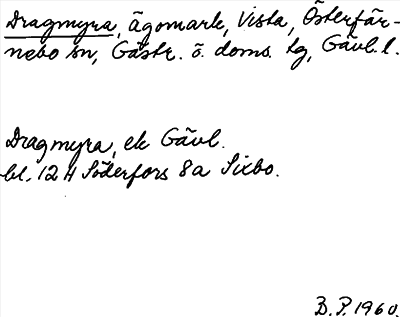 Dragmyra, ägomark, Vista, Österfär-
nebo sn, Gästr. ö. doms. tg, Gävl. l.
Dragmyra, ek Gävl.
bl. 12 H Söderfors 8a Sixbo.
B. P. 1960.